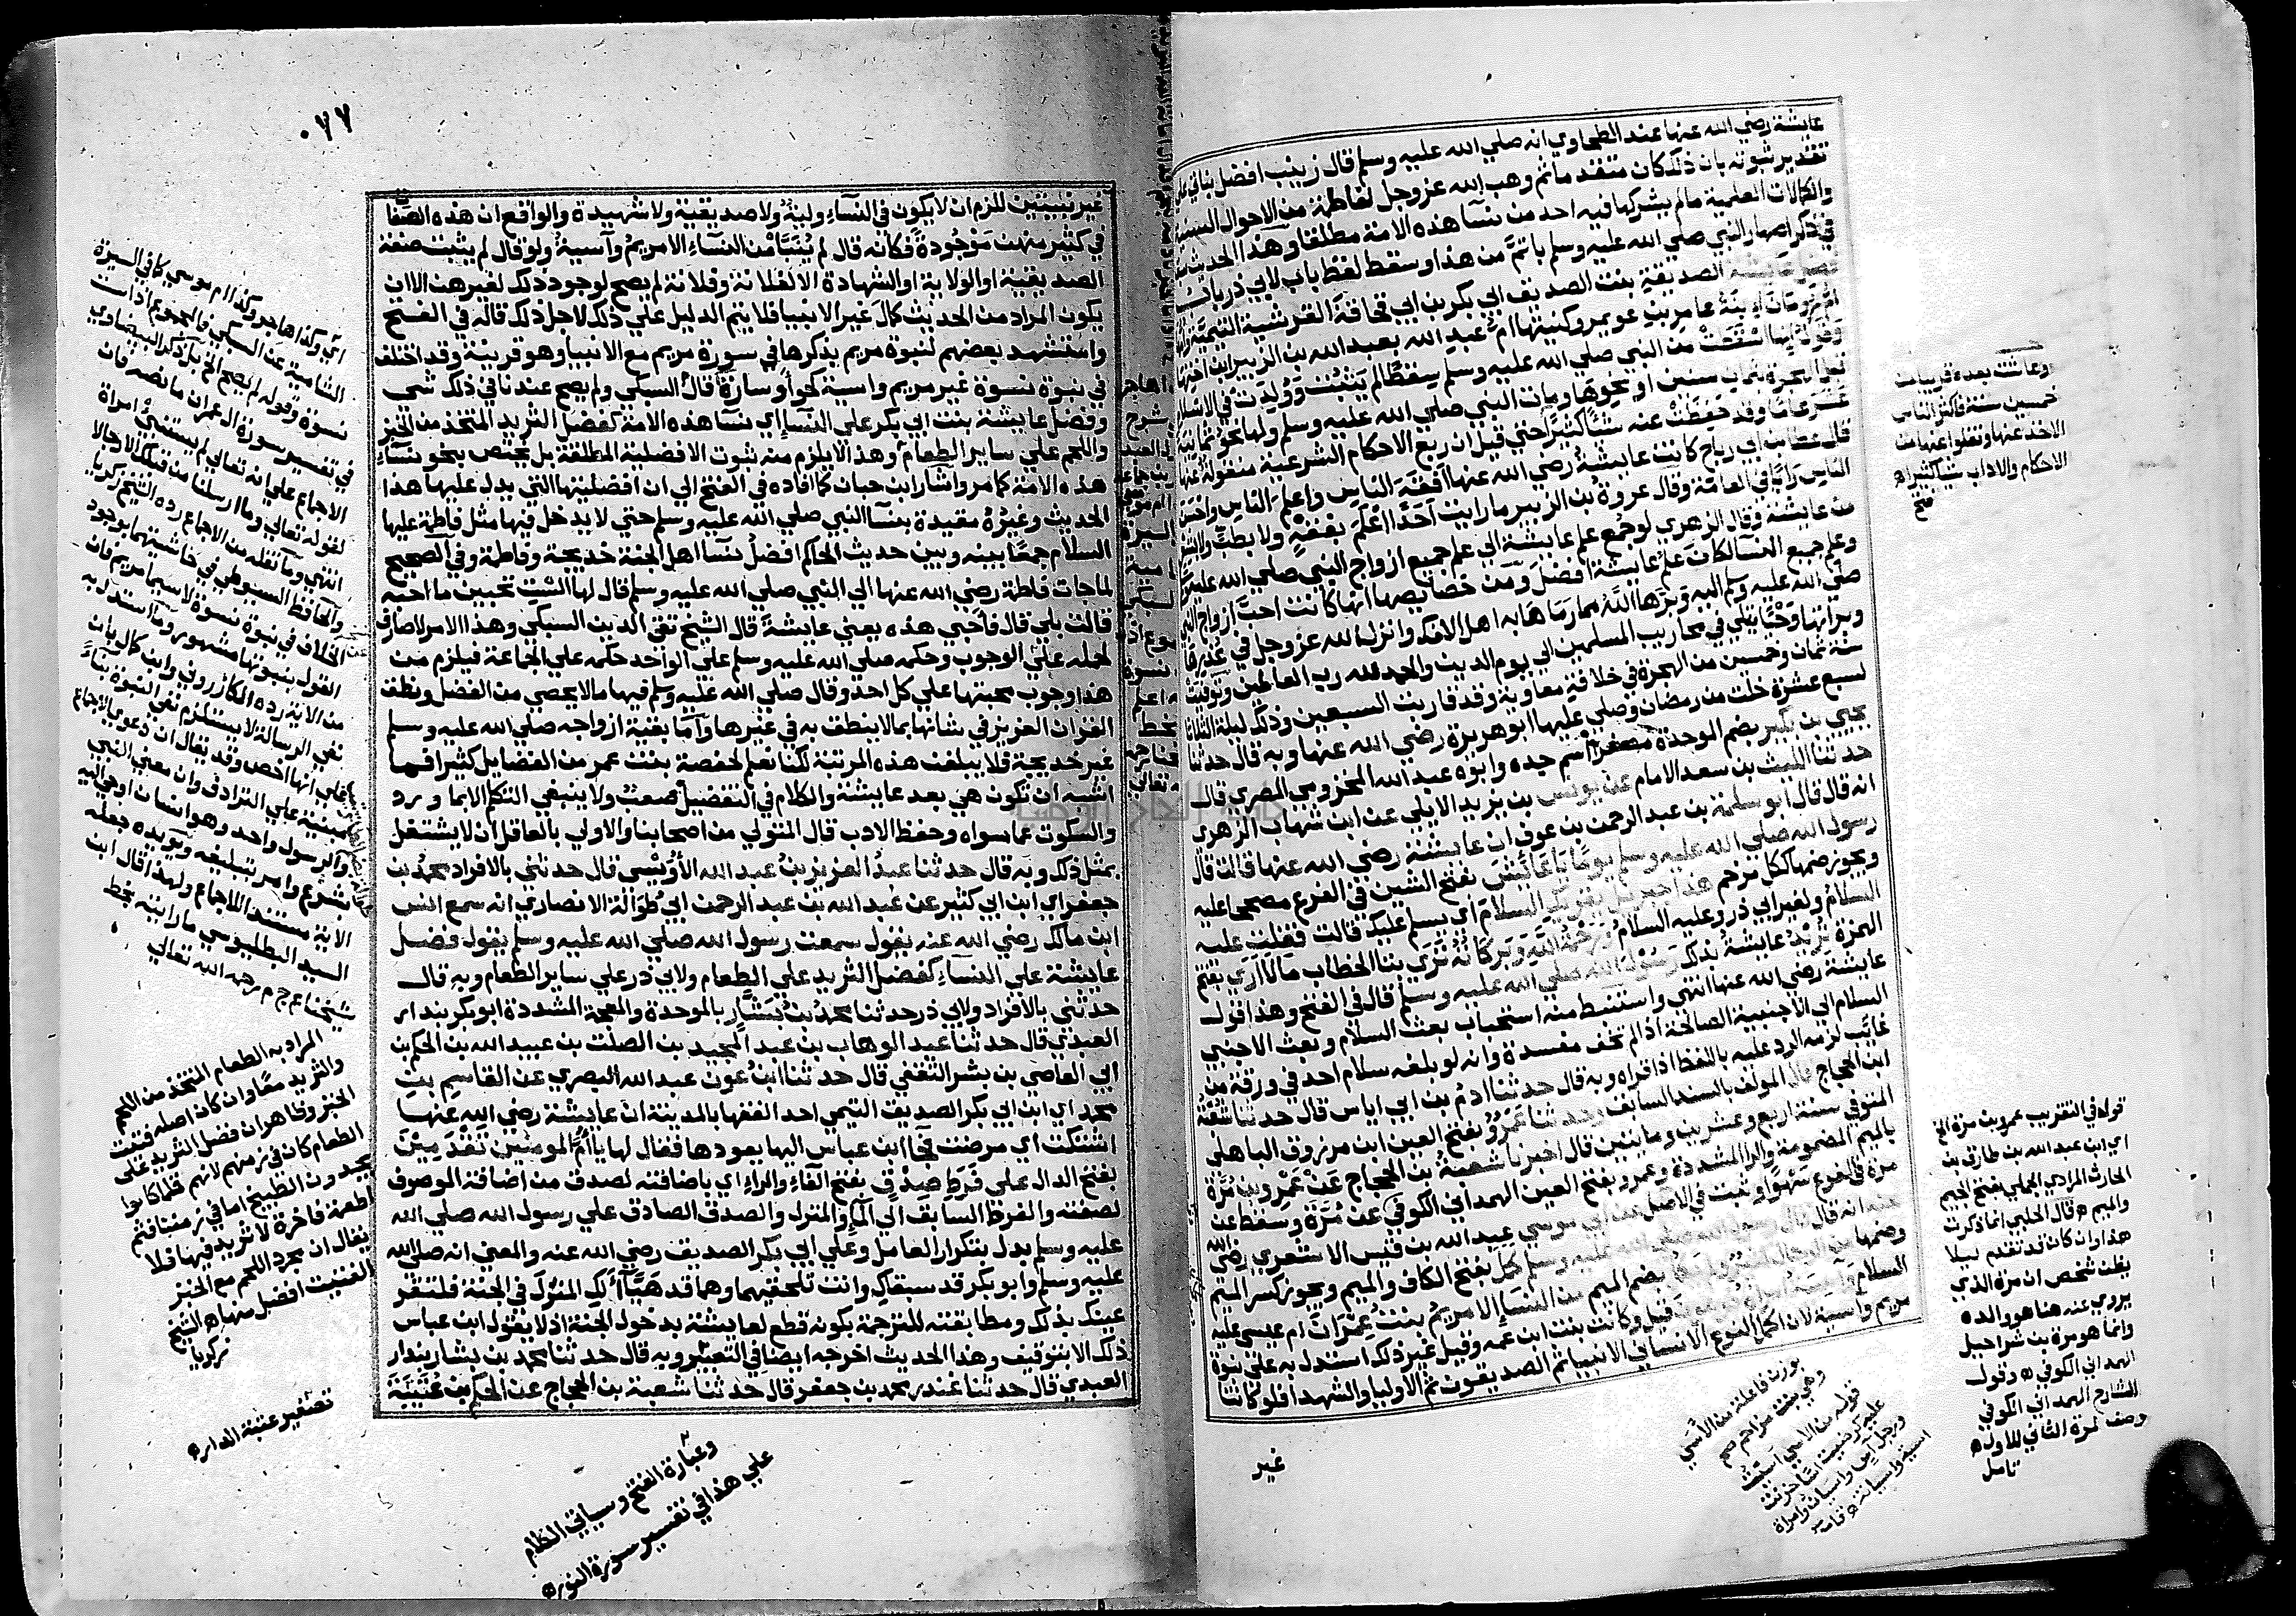 عايشة رضي الله عنها عند الطحاوي انه صلي الله عليه وسلم قال زينب افضل بناتي علي
تقدير ثبوته بان ذلك كان متقدما ثم وهب الله عز وجل لفاطمة من الاحوال السنية
والكمالات العلمية ما لم يشركها فيه احد من نسآ هذه الامة مطلقا وهذا الحديث
في ذكر اصهار النبي صلي الله عليه وسلم باتم من هذا وسقط لفظ باب لابي ذر باب
فضل عايشة الصديقة بنت الصديق ابي بكر بن ابي قحافة القرشية التيمية
ام رومان ابنة عامر بن عويمر وكنيتها ام عبد الله بعبد الله بن الزبير ابن اختها
وقول انها اسقطت من النبي صلي الله عليه وسلم سقطا لم يثبت وولدت في الاسلام
قبل الهجرة بثمان سنين او نحوها ومات النبي صلي الله عليه وسلم ولها نحو ثمانية
عشر عاما وقد حفظت عنه شئا كثيرا حتي قيل ان ربع الاحكام الشرعية منقولة عنها
قال عطا بن ابي رباح كانت عايشة رضي الله عنها افقه الناس واعلم الناس واحسن
الناس رايا في العامة وقال عروة بن الزبير ما رايت احدا اعلم بفقه ولا بطب ولا بشعر
من عايشة وقال الزهري لو جمع علم عايشة الي علم جميع ازواج النبي صلي الله عليه وسلم
وعلم جميع النسآ لكان علم عايشة افضل ومن خصايصها انها كانت احب ازواج النبي
صلي الله عليه وسلم اليه وبرّها الله مما رماها به اهل الافك وانزل الله عز وجل في عذرها
وبراتها وحيا يتلي في محاريب المسلمين الي يوم الدين والحمد لله رب العالمين وتوفيت
سنة ثمان وخمسين من الهجرة في خلافة معاوية وقد قاربت السبعين وذلك ليلة الثلاثا
لسبع عشرة خلت من رمضان وصلي عليها ابو هريرة رضي الله عنها وبه قال حدثنا
يحيي بن بكير بضم الوحدة مصغرا اسم جده وابوه عبد الله المخزومي المصري قال
حدثنا الليث بن سعد الامام عن يونس بن يزيد الايلي عن ابن شهاب الزهري
انه قال قال ابو سلمة بن عبد الرحمن بن عوف ان عايشة رضي الله عنها قالت قال
رسول الله صلي الله عليه وسلم يوما يا عايش بفتح الشين في الفرع مصححا عليه
ويجوز ضمها ككل مرخم هذا جبريل يقريك السلام اي يسلم عليك قالت فقلت عليه
السلام ولغير ابي ذر وعليه السلام ورحمة الله وبركاته تري بتا الخطاب ما لا اري بفتح
الهمزة تريد عايشة بذلك رسول الله صلي الله عليه وسلم قال في الفتح وهذا قول
عايشة رضي الله عنها انتهي واستنبط منه استحباب بعث السلام وبعث الاجنبي
السلام الي الاجنبية الصالحة اذا لم تخف مفسدة وانه لو بلغه سلام احد في ورقة من
غايب لزمه الرد عليه باللفظ اذا قراه وبه قال حدثنا ادم بن ابي اياس قال حدثنا شعبة
ابن الحجاج قال المولف بالسند السابق وحدثنا عمرو بفتح العين ابن مرزوق الباهلي
المتوفي سنة اربع وعشرين وماينين قال اخبرنا شعبة بن الحجاج عن عمرو بن مرة
بالميم المضمومة والرا المشددة وعمرو بفتح العين الهمداني الكوفي عن مرة وسقط عن
مرة في الفرع سهوا وثبت في الاصل عن ابي موسي عبد الله بن قيس الاشعري رضي الله
عنه انه قال قال رسول الله صلي الله عليه وسلم كمل بفتح الكاف والميم ويجوز كسر الميم
وضمها من الرجال كثير ولم يكمل بضم الميم من النسا الا مريم بنت عمران ام عيسي عليه
السلام وآسية امراة فرعون قيل وكانت بنت ابن عمه وقيل غير ذلك استدل به علي نبوة
مريم وآسية لان اكمل النوع الانساني الانبيا ثم الصديقون ثم الاوليا والشهدا فلو كانتا
غير
وعاشت بعده قريبا من
خمسين سنة فاكثر الناس
الاخذ عنها ونقلوا عنها من
الاحكام والاداب شيا كثيرا ه
فتح
قوله في التقريب عمرو بن مرة الخ
اي ابن عبد الله بن طارق بن
الحارث المرادي الجملي بفتح الجيم
والميم ه قال الحلبي انما ذكرت
هذا وان كان قد تقدم ليلا
يظن شخص ان مرة الذي
يروي عنه هنا هو والده
وانما هو مرة بن شراحيل
الهمداني الكوفي ه وقول
الشارح الهمداني الكوفي
وصف لمرة الثاني للاول ه
تامل
بوزن فاعلة من الاسي
وهي بنت مزاحم
٠٧٧
غير نبيتين للزم ان لا يكون في النسآء ولية ولا صديقية ولا شهيدة والواقع ان هذه الصفا
في كثير منهن موجودة فكانه قال لم ينبّا من النسآء الا مريم وآسية ولو قال لم يثبت صفة
الصديقية او الولاية او الشهادة الا لفلانة وفلانة لم يصح لوجود ذلك لغيرهن الا ان
يكون المراد من الحديث كمال غير الانبيا فلا يتم الدليل علي ذلك لاجل ذلك قاله في الفتح
واستشهد بعضهم لنبوة مريم بذكرها في سورة مريم مع الانبيا وهو قرينة وقد اختلف
في نبوة نسوة غير مريم واسية كحوا وسارة قال السبكي ولم يصح عندنا في ذلك شي
وفضل عايشة بنت ابي بكر علي النسآ اي نسآ هذه الامة كفضل الثريد المتخذ من الخبز
واللحم علي ساير الطعام وهذا لا يلزم منه ثبوت الافضلية المطلقة بل يختص بنحو نسآء
هذه الامة كما مر واشار ابن حبان كما افاده في الفتح الي ان افضليتها التي يدل عليها هذا
الحديث وغيره مقيدة بنسآ النبي صلي الله عليه وسلم حتي لا يدخل فيها مثل فاطمة عليها
السلام جمعا بينه وبين حديث الحاكم افضل نسآ اهل الجنة خديجة وفاطمة وفي الصحيح
لما جات فاطمة رضي الله عنها الي النبي صلي الله عليه وسلم قال لها الست تحبين ما احبه
قالت بلي قال فاحبي هذه يعني عايشة قال الشيخ تقي الدين السبكي وهذا الامر لا صارف
لحمله علي الوجوب وحكمه صلي الله عليه وسلم علي الواحد حكمه علي الجماعة فيلزم من
هذا وجوب محبتها علي كل احد وقال صلي الله عليه وسلم فيها ما لا يحصي من الفضل ونطق
القران العزيز في شانها بما لا ينطق به في غيرها واما بقية ازواجه صلي الله عليه وسلم
غير خديجة فلا يبلغن هذه المرتبة لكنا نعلم لحفصة بنت عمر من الفضايل كثيرا فما
اشبه ان تكون هي بعد عايشة والكلام في التفضيل صعب ولا ينبغي التكلم الا بما ورد
والسكوت عما سواه وحفظ الادب قال المتولي من اصحابنا والاولي بالعاقل ان لا يشتغل
بمثل ذلك وبه قال حدثنا عبد العزيز بن عبد الله الأويسي قال حدثني بالافراد محمد بن
جعفر اي ابن ابي كثير عن عبد الله بن عبد الرحمن ابي طوالة الانصاري انه سمع انس
ابن مالك رضي الله عنه يقول سمعت رسول الله صلي الله عليه وسلم يقول فضل
عايشة علي النسآء كفضل الثريد علي الطعام ولابي ذر علي ساير الطعام وبه قال
حدثني بالافراد ولابي ذر حدثنا محمد بن بشار بالموحدة والمعجمة المشددة ابو بكر بندار
العبدي قال حدثنا عبد الوهاب بن عبد المجيد بن الصلت بن عبيد الله بن الحكم بن
ابي العاصي بن بشر الثقفي قال حدثنا ابن عون عبد الله البصري عن القاسم بن
محمد اي ابن ابي بكر الصديق التيمي احد الفقها بالمدينة ان عايشة رضي الله عنها
اشتكت اي مرضت فجا ابن عباس اليها يعودها فقال لها يا ام المومنين تقدمين
بفتح الدال علي فرط صدق بفتح الفآء والراء اي باضافته لصدق من اضافة الموصوف
لصفته والفرط السابق الي المآء والمنزل والصدق الصادق علي رسول الله صلي الله
عليه وسلم بدل بتكرار العامل وعلي ابي بكر الصديق رضي الله عنه والمعني انه صلي الله
عليه وسلم وابو بكر قد سبقاك وانت تلحقيهما وهما قد هيّا لك المنزل في الجنة فلتقر
عينك بذلك ومطابقته للترجمة بكونه قطع لعايشة بدخول الجنة اذ لا يقول ابن عباس
ذلك الا بتوقيف وهذا الحديث اخرجه ايضا في التعبير وبه قال حدثنا محمد بن بشار بندار
العبدي قال حدثنا غندر محمد بن جعفر قال حدثنا شعبة بن الحجاج عن الحكم بن عتيبة
اي وكذا هاجر وكذا ام موسي كما في السيرة
الشامية عن السبكي فالمجموع اذا ست
نسوة وقوله لم يصح الخ بل ذكر البيضاوي
في تفسير سورة ال عمران ما نصه فان
الاجماع علي انه تعالي لم يستنبي امراة
لقوله تعالي وما ارسلنا من قبلك الا رجالا
انتهي وما نقله من الاجماع رده الشيخ زكريا
والحافظ السيوطي في حاشيتهما بوجود
الخلاف في نبوة نسوة لاسيما مريم فان
القول بنبوتها مشهور وما استدل به
من الاية رده الكازروني وابن كمال بان
نفي الرسالة لا يستلزم نفي النبوة بناءً
علي انها اخص وقد يقال ان دعوي الاجماع
مبنية علي الترادف وان معني النبي
والرسول واحد وهو انسان اوحي اليه
بشرع وامر بتبليغه ويويده جعله
الاية مستند الاجماع ولهذا قال ابن
السيد البطليوسي ما رايته بخط
شيخنا ع ج م رحمه الله تعالي
المراد به الطعام المتخذ من اللحم
والثريد معا وان كان اصله فتيت
الخبز وظاهر ان فضل الثريد علي
الطعام كان في زمنهم لانهم قلما كانوا
يجدون الطبيخ اما في زمننا فثم
اطعمة فاخرة لا ثريد فيها فلا
يقال ان مجرد اللحم مع الخبز
الفتيت افضل منها ه الشيخ
زكريا
تصغير عتبة الدار ه
وعبارة الفتح وسياتي الكلام
علي هذا في تفسير سورة النور ه